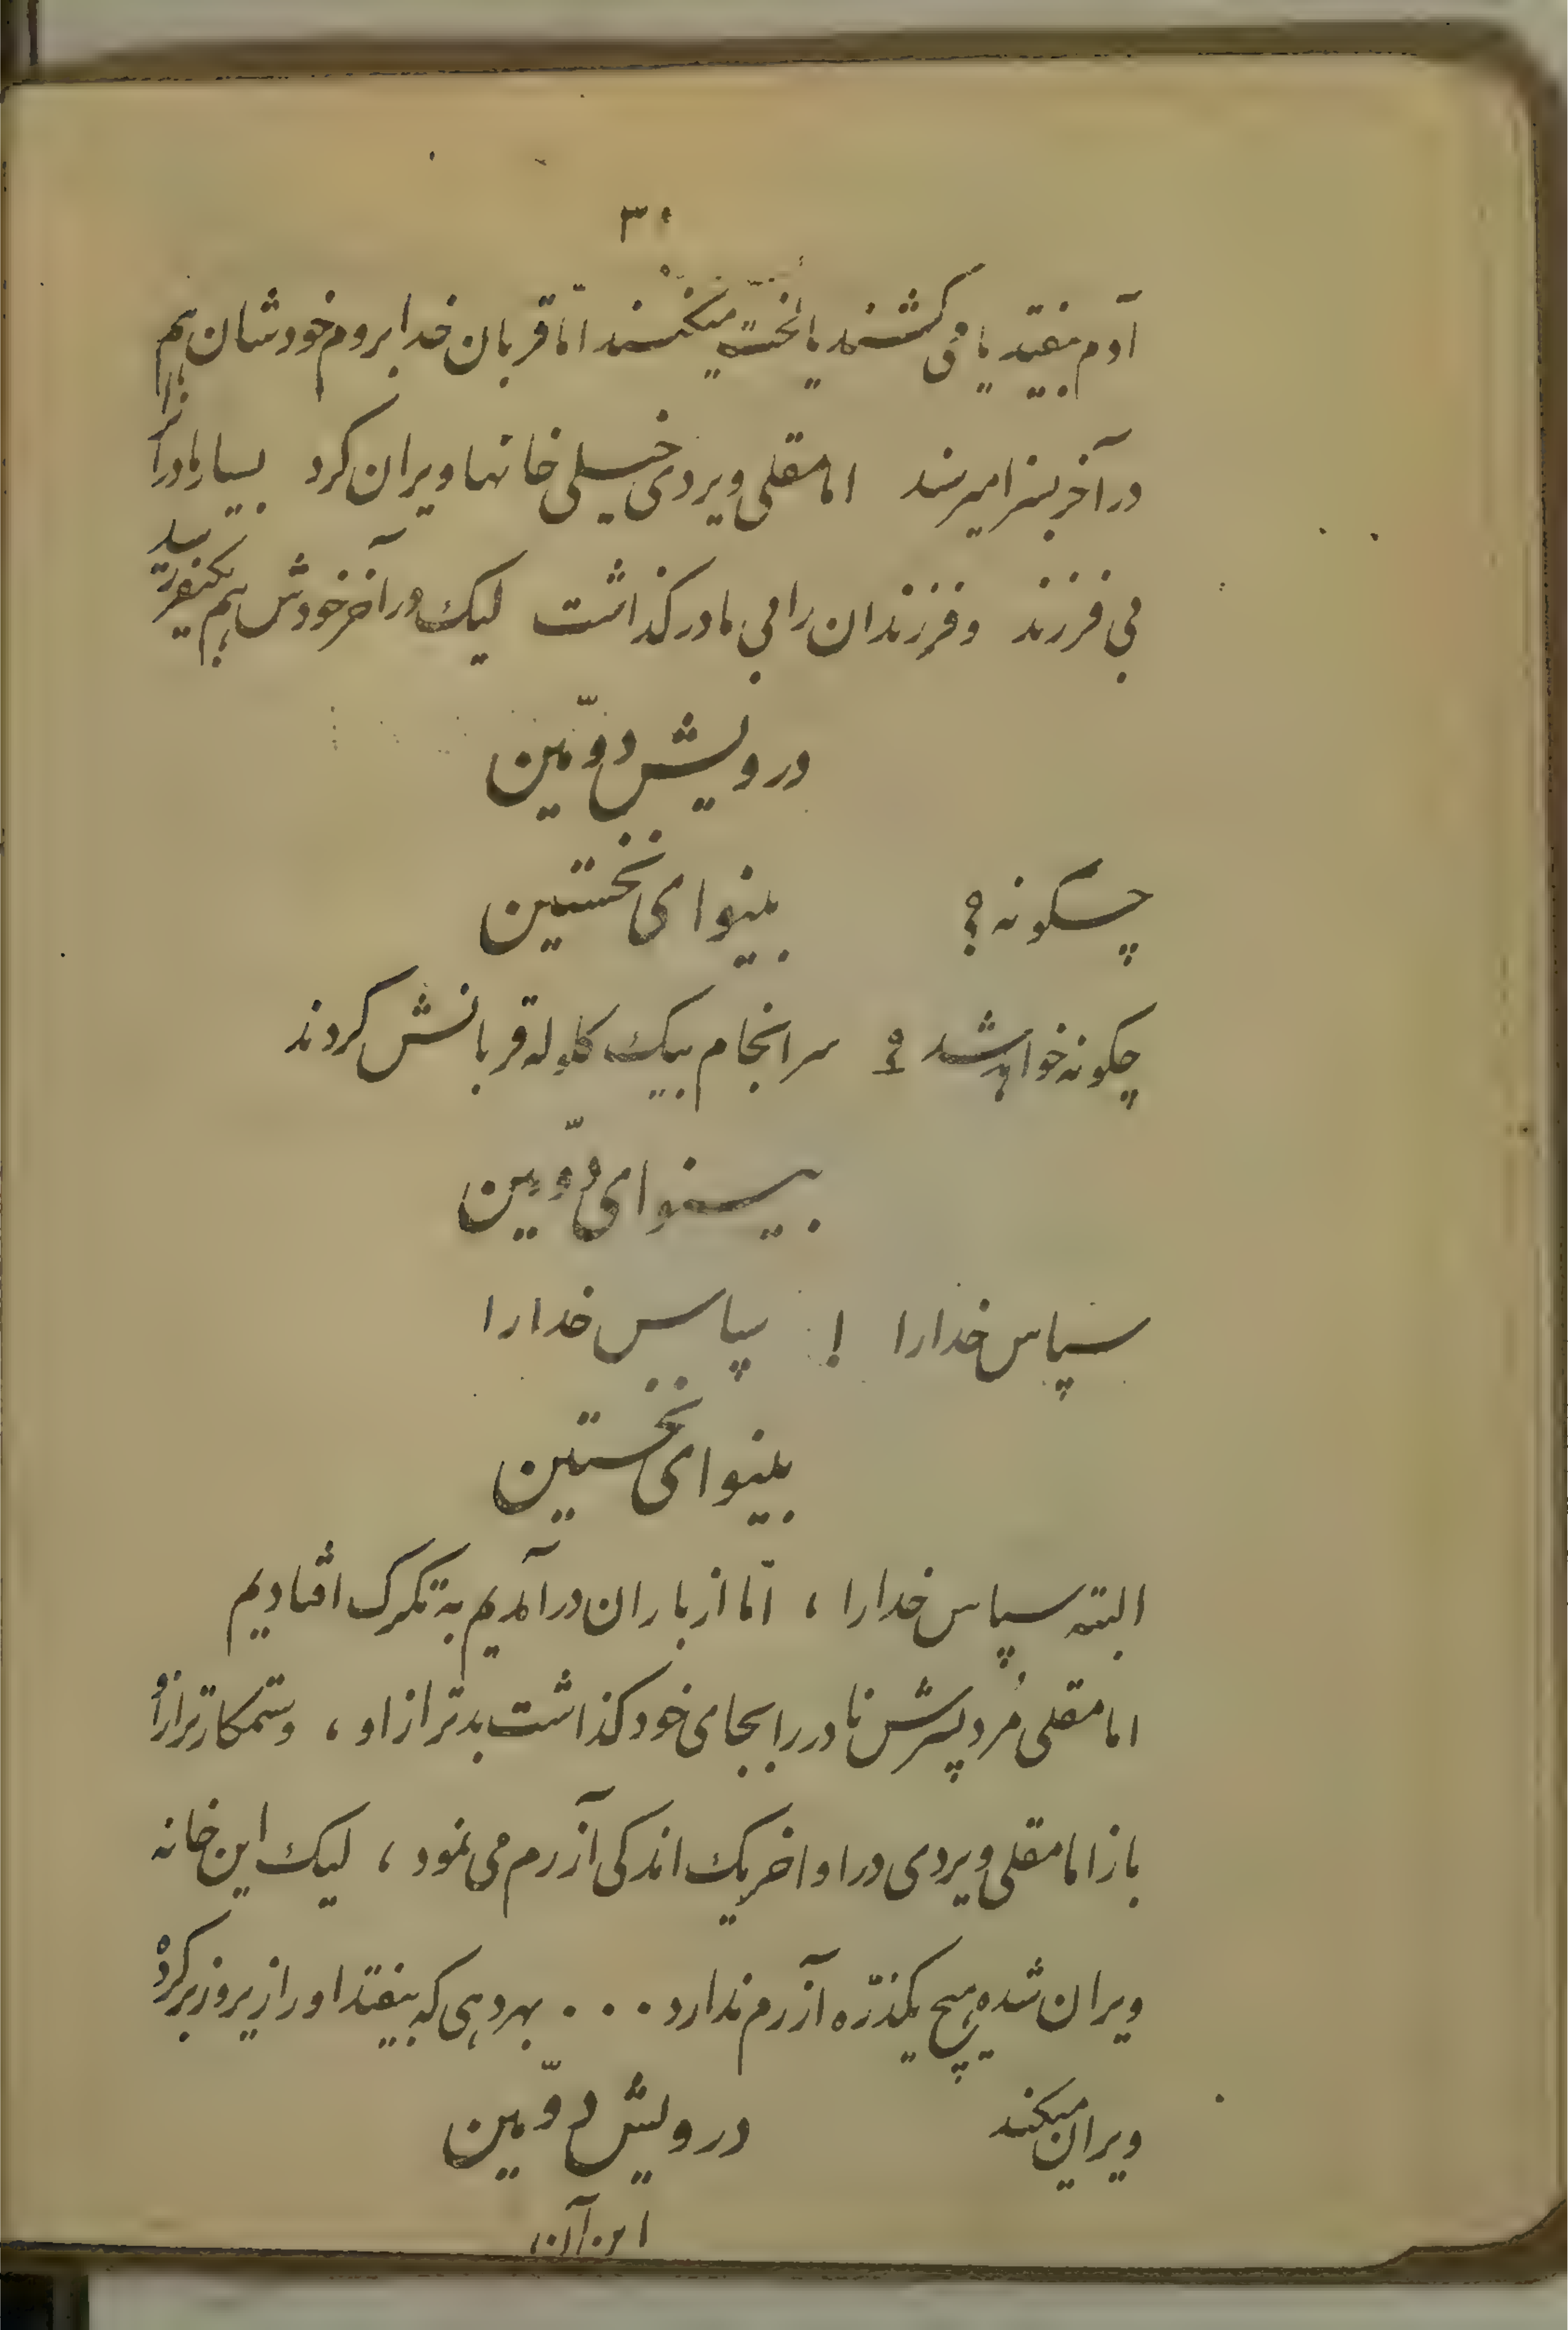 ۳۰
آدم بیفتید یا می کشند یا لخت میکنند اما قربان خدا بروم خودشان هم
در آخر بسزا میرسند امامقلی ویردی خیلی خانها ویران کرد بسیار مادرانرا
بی فرزند و فرزندان را بی مادر گذاشت لیک در آخر خودش هم بکیفر رسید
درویش دوّمین
چگونه ؟ بینوای نخستین
چگونه خواهد شد ؟ سرانجام بیک گلوله قربانش کردند
بینوای دوّمین
سپاس خدارا ! سپاس خدارا
بینوای نخستین
البته سپاس خدارا ، اما از باران درآمدیم به تگرگ افتادیم
امامقلی مُرد پسرش نادر را بجای خود گذاشت بدتر از او ، وستمکارتر ازو
باز امامقلی ویردی در اواخر یک اندکی آزرم می نمود ، لیک این خانه
ویران شده هیچ یکذرّه آزرم ندارد . . . بهر دهی که بیفتد او را زیر وزبر کرده
ویران میکند درویش دوّمین